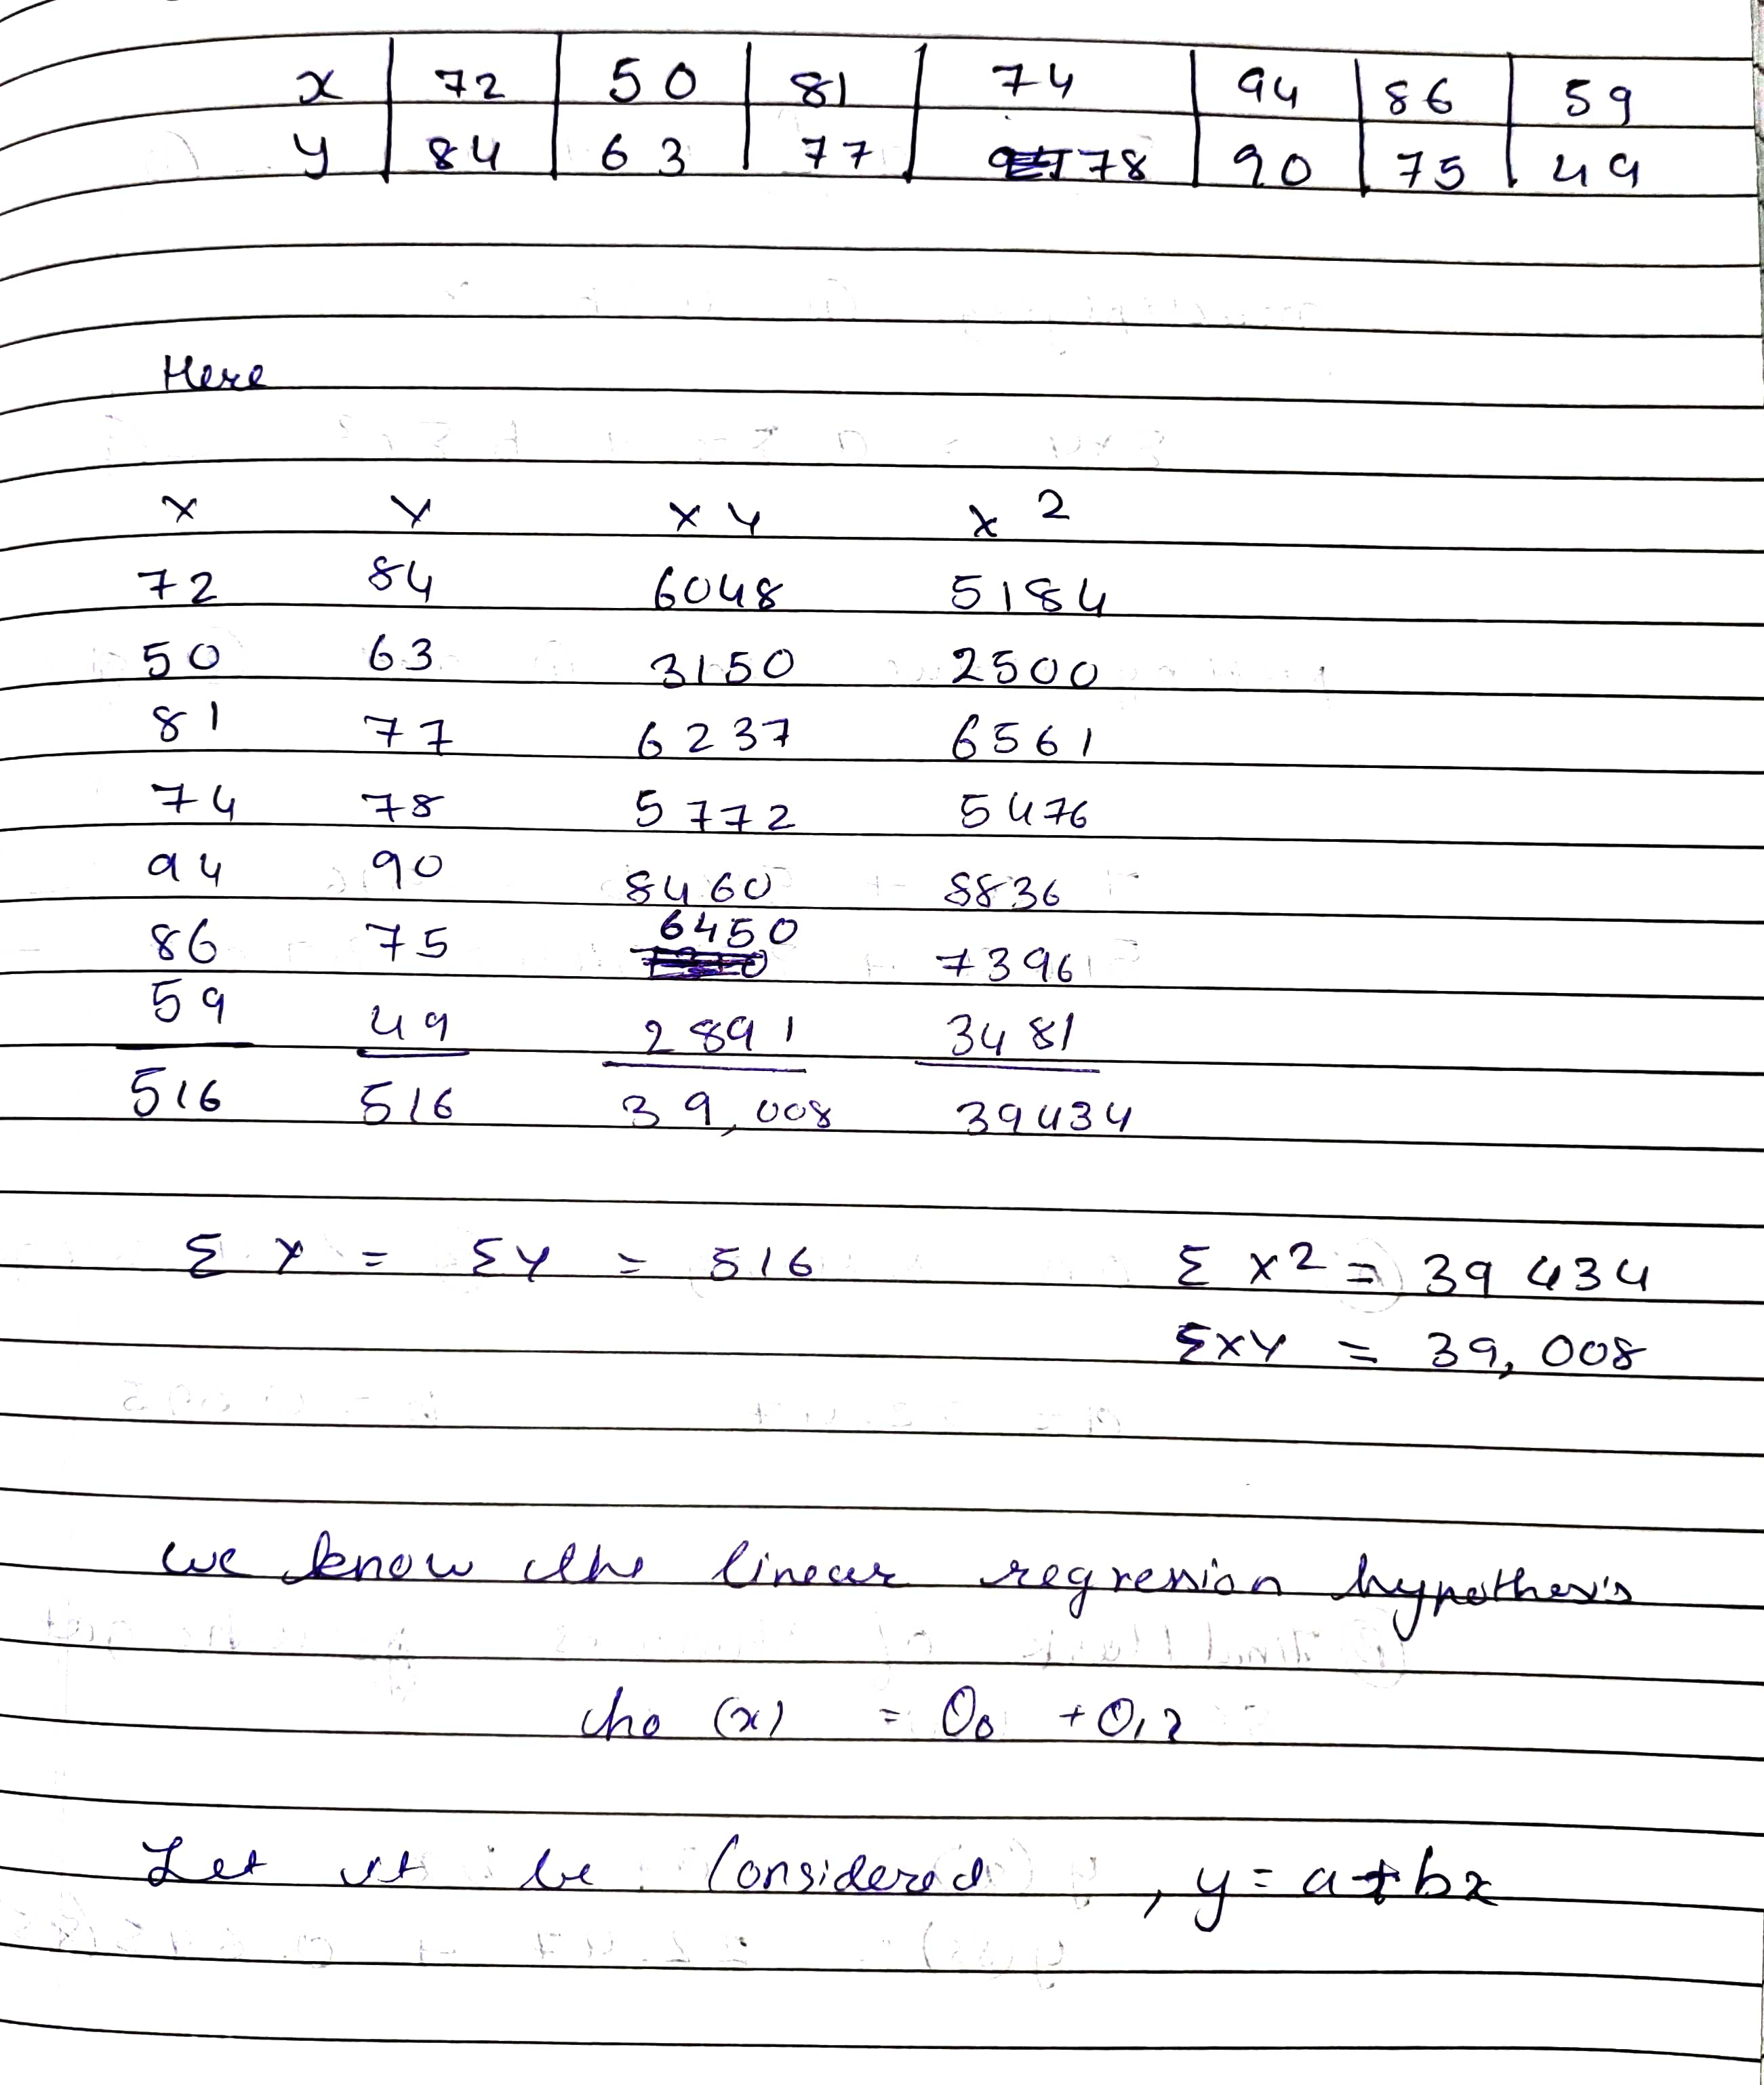 x | 72 | 50 | 81 | 74 | 94 | 86 | 59
y | 84 | 63 | 77 | 78 | 90 | 75 | 49
Here
x y xy x2
72 84 6048 5184
50 63 3150 2500
81 77 6237 6561
74 78 5772 5476
94 90 8460 8836
86 75 6450 7396
59 49 2891 3481
516 516 39,008 39434
Σ x = Σy = 516 Σ x2 = 39 434
Σxy = 39,008
we know the linear regression hypothesis
ho (x) = O0 + O1x
Let it be Considered , y = a + bx